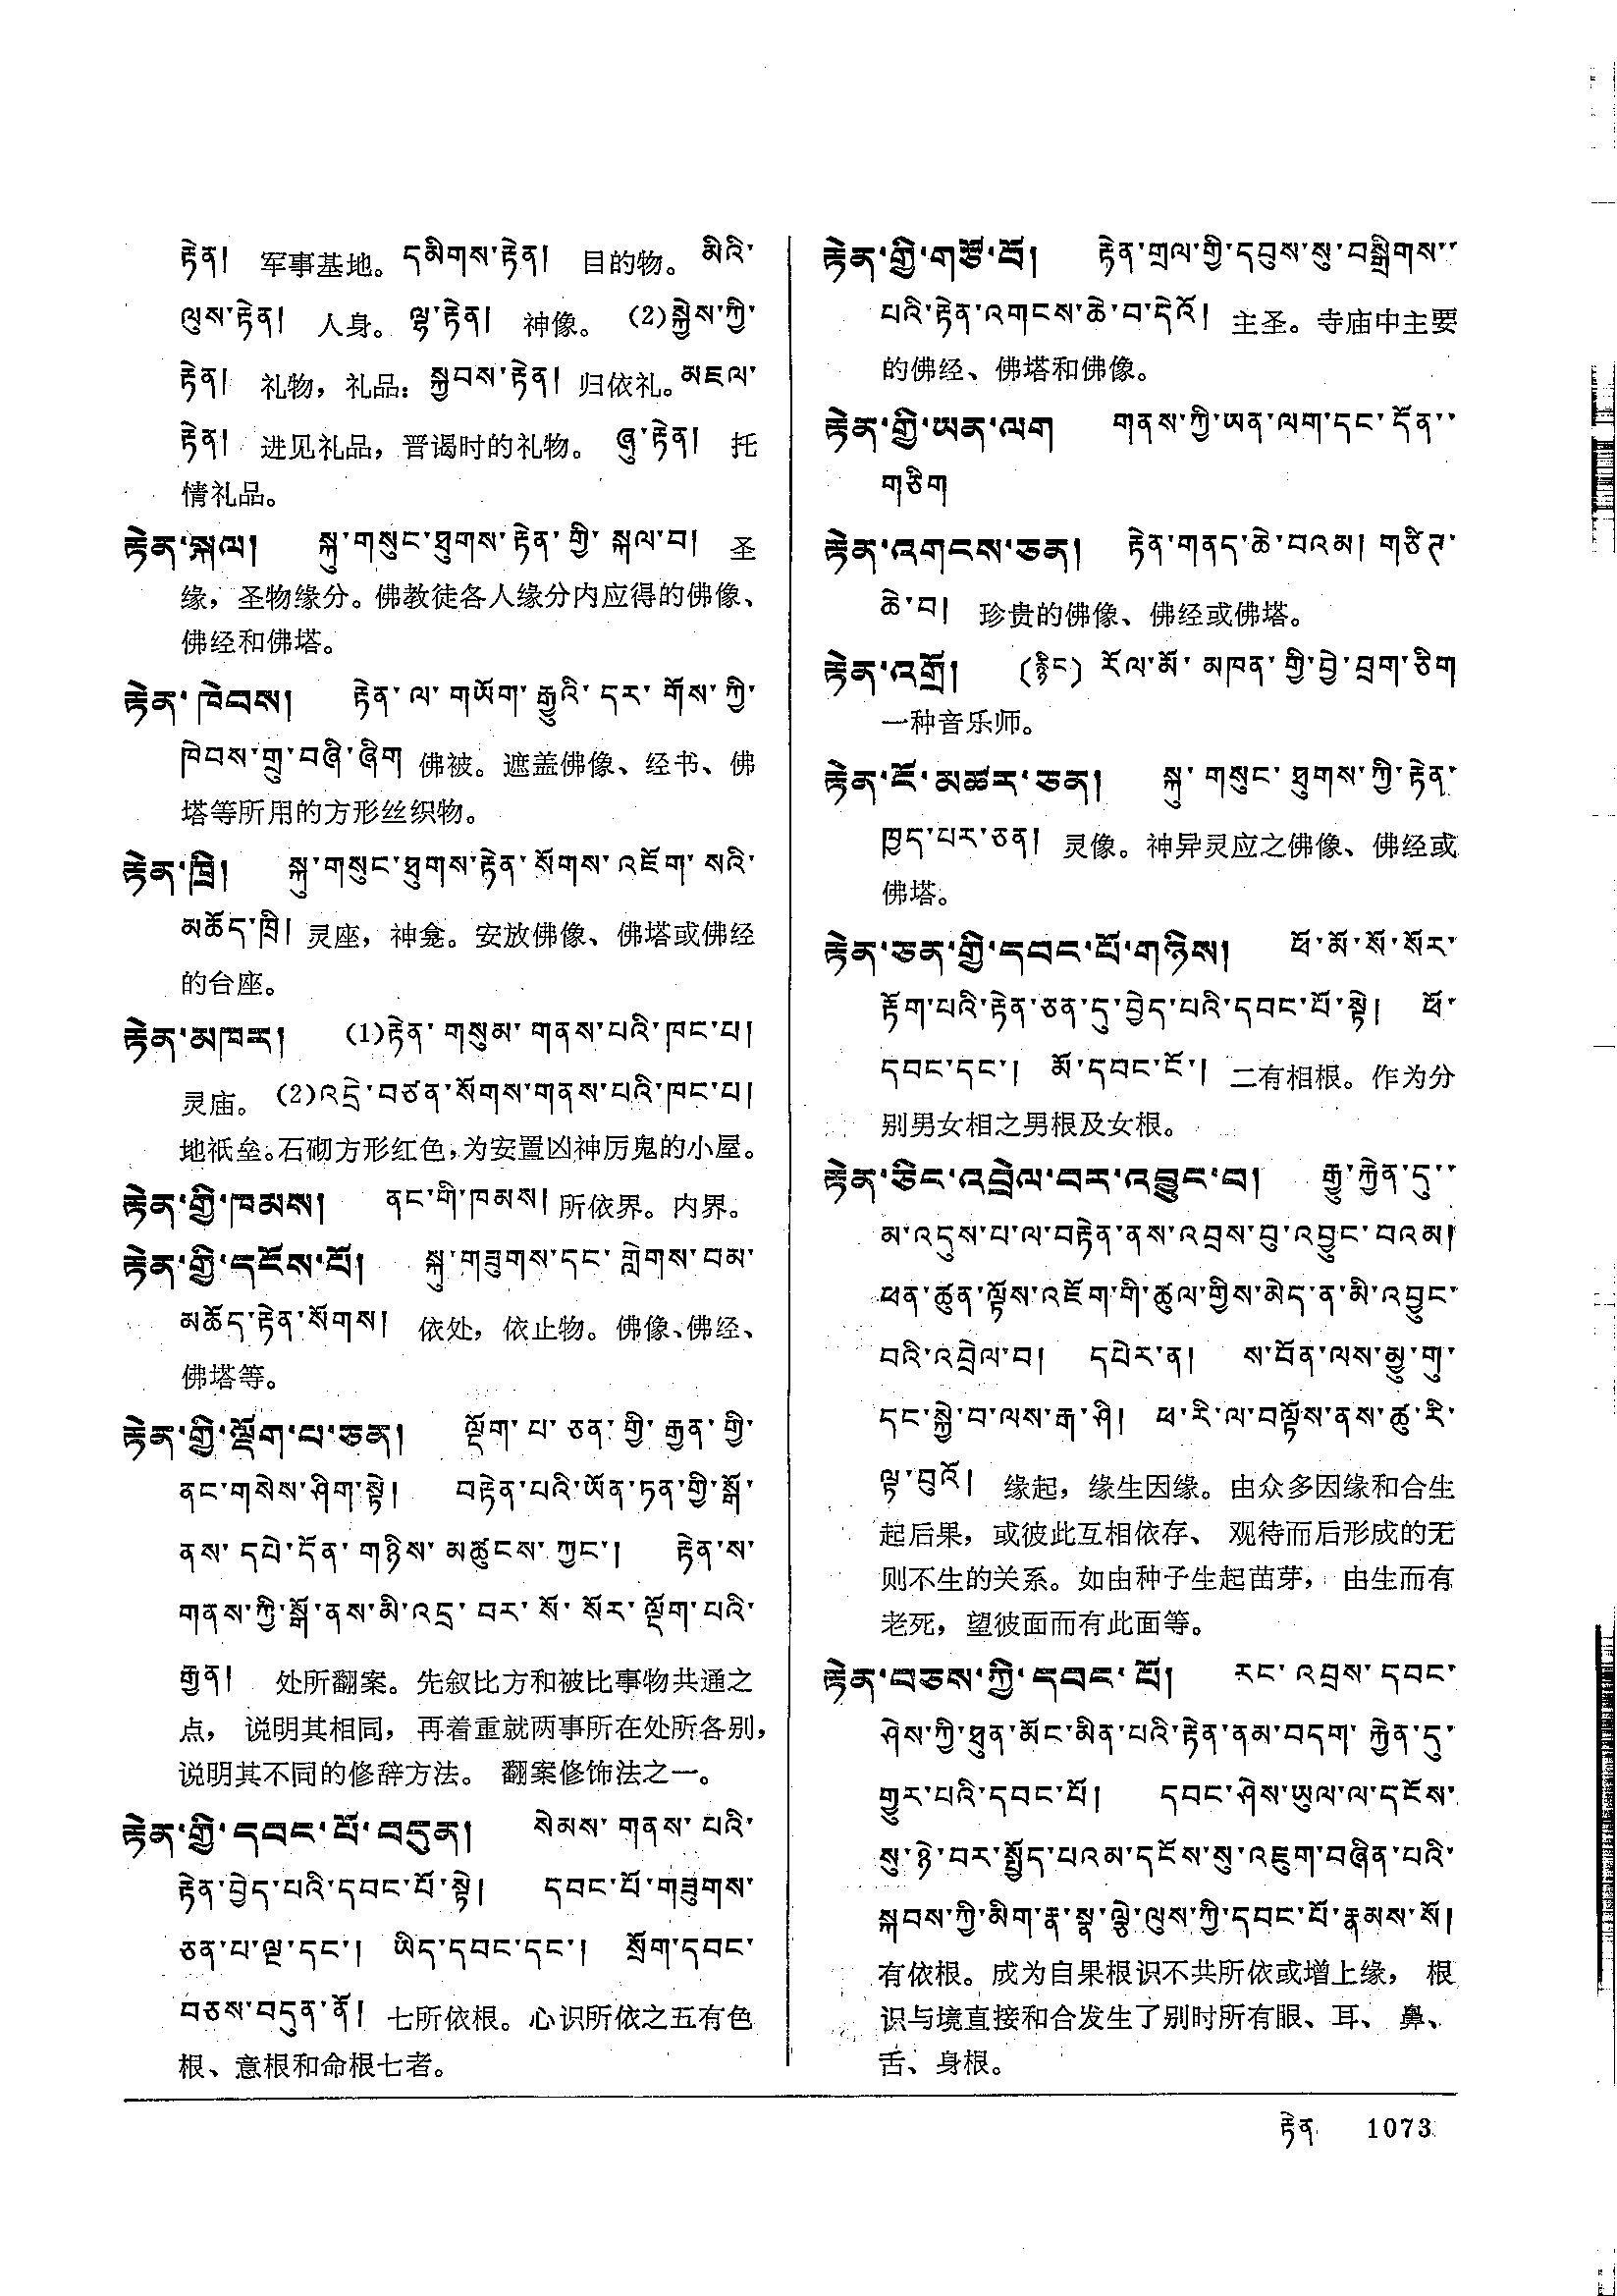 རྟེན། 军事基地。དམིགས་རྟེན། 目的物。མིའི་
ལུས་རྟེན། 人身。ལྷ་རྟེན། 神像。(2)སྐྱེས་ཀྱི་
རྟེན། 礼物，礼品：སྐྱབས་རྟེན། 归依礼。མཇལ་
རྟེན། 进见礼品，晋谒时的礼物。ཞུ་རྟེན། 托
情礼品。
རྟེན་སྐལ། སྐུ་གསུང་ཐུགས་རྟེན་གྱི་སྐལ་བ། 圣
缘，圣物缘分。佛教徒各人缘分内应得的佛像、
佛经和佛塔。
རྟེན་ཁེབས། རྟེན་ལ་གཡོག་རྒྱུའི་དར་གོས་ཀྱི་
ཁེབས་གྲུ་བཞི་ཞིག 佛被。遮盖佛像、经书、佛
塔等所用的方形丝织物。
རྟེན་ཁྲི། སྐུ་གསུང་ཐུགས་རྟེན་སོགས་འཇོག་སའི་
མཆོད་ཁྲི། 灵座，神龛。安放佛像、佛塔或佛经
的台座。
རྟེན་མཁར། (1)རྟེན་གསུམ་གནས་པའི་ཁང་པ།
灵庙。(2)འདྲེ་བཙན་སོགས་གནས་པའི་ཁང་པ།
地祇垒。石砌方形红色，为安置凶神厉鬼的小屋。
རྟེན་གྱི་ཁམས། ནང་གི་ཁམས། 所依界。内界。
རྟེན་གྱི་དངོས་པོ། སྐུ་གཟུགས་དང་གླེགས་བམ་
མཆོད་རྟེན་སོགས། 依处，依止物。佛像、佛经、
佛塔等。
རྟེན་གྱི་ལྡོག་པ་ཅན། ལྡོག་པ་ཅན་གྱི་རྒྱན་གྱི་
ནང་གསེས་ཤིག་སྟེ། བརྟེན་པའི་ཡོན་ཏན་གྱི་སྒོ་
ནས་དཔེ་དོན་གཉིས་མཚུངས་ཀྱང་། རྟེན་ས་
གནས་ཀྱི་སྒོ་ནས་མི་འདྲ་བར་སོ་སོར་ལྡོག་པའི་
རྒྱན། 处所翻案。先叙比方和被比事物共通之
点，说明其相同，再着重就两事所在处所各别，
说明其不同的修辞方法。翻案修饰法之一。
རྟེན་གྱི་དབང་པོ་བདུན། སེམས་གནས་པའི་
རྟེན་བྱེད་པའི་དབང་པོ་སྟེ། དབང་པོ་གཟུགས་
ཅན་པ་ལྔ་དང་། ཡིད་དབང་དང་། སྲོག་དབང་
བཅས་བདུན་ནོ། 七所依根。心识所依之五有色
根、意根和命根七者。
རྟེན་གྱི་གཙོ་བོ། རྟེན་གྲལ་གྱི་དབུས་སུ་བསྒྲིགས་
པའི་རྟེན་འགངས་ཆེ་བ་དེའོ། 主圣。寺庙中主要
的佛经、佛塔和佛像。
རྟེན་གྱི་ཡན་ལག གནས་ཀྱི་ཡན་ལག་དང་དོན་
གཅིག
རྟེན་འགངས་ཅན། རྟེན་གནད་ཆེ་བའམ། གཙིཊ་
ཆེ་བ། 珍贵的佛像、佛经或佛塔。
རྟེན་འགྲོ། (རྙིང) རོལ་མོ་མཁན་གྱི་བྱེ་བྲག་ཅིག
一种音乐师。
རྟེན་ངོ་མཚར་ཅན། སྐུ་གསུང་ཐུགས་ཀྱི་རྟེན་
ཁྱད་པར་ཅན། 灵像。神异灵应之佛像、佛经或
佛塔。
རྟེན་ཅན་གྱི་དབང་པོ་གཉིས། ཕོ་མོ་སོ་སོར་
རྟོག་པའི་རྟེན་ཅན་དུ་བྱེད་པའི་དབང་པོ་སྟེ། ཕོ་
དབང་དང་། མོ་དབང་ངོ་། 二有相根。作为分
别男女相之男根及女根。
རྟེན་ཅིང་འབྲེལ་བར་འབྱུང་བ། རྒྱུ་རྐྱེན་དུ་
མ་འདུས་པ་ལ་བརྟེན་ནས་འབྲས་བུ་འབྱུང་བའམ།
ཕན་ཚུན་ལྟོས་འཇོག་གི་ཚུལ་གྱིས་མེད་ན་མི་འབྱུང་
བའི་འབྲེལ་བ། དཔེར་ན། ས་བོན་ལས་མྱུ་གུ་
དང་སྐྱེ་བ་ལས་རྒ་ཤི། ཕ་རི་ལ་བལྟོས་ནས་ཚུ་རི་
ལྟ་བུའོ། 缘起，缘生因缘。由众多因缘和合生
起后果，或彼此互相依存、观待而后形成的无
则不生的关系。如由种子生起苗芽，由生而有
老死，望彼面而有此面等。
རྟེན་བཅས་ཀྱི་དབང་པོ། རང་འབྲས་དབང་
ཤེས་ཀྱི་ཐུན་མོང་མིན་པའི་རྟེན་ནམ་བདག་རྐྱེན་དུ་
གྱུར་པའི་དབང་པོ། དབང་ཤེས་ཡུལ་ལ་དངོས་
སུ་ཉེ་བར་སྤྱོད་པའམ་དངོས་སུ་འཇུག་བཞིན་པའི་
སྐབས་ཀྱི་མིག་རྣ་སྣ་ལྕེ་ལུས་ཀྱི་དབང་པོ་རྣམས་སོ།
有依根。成为自果根识不共所依或增上缘，根
识与境直接和合发生了别时所有眼、耳、鼻、
舌、身根。
རྟེན 1073